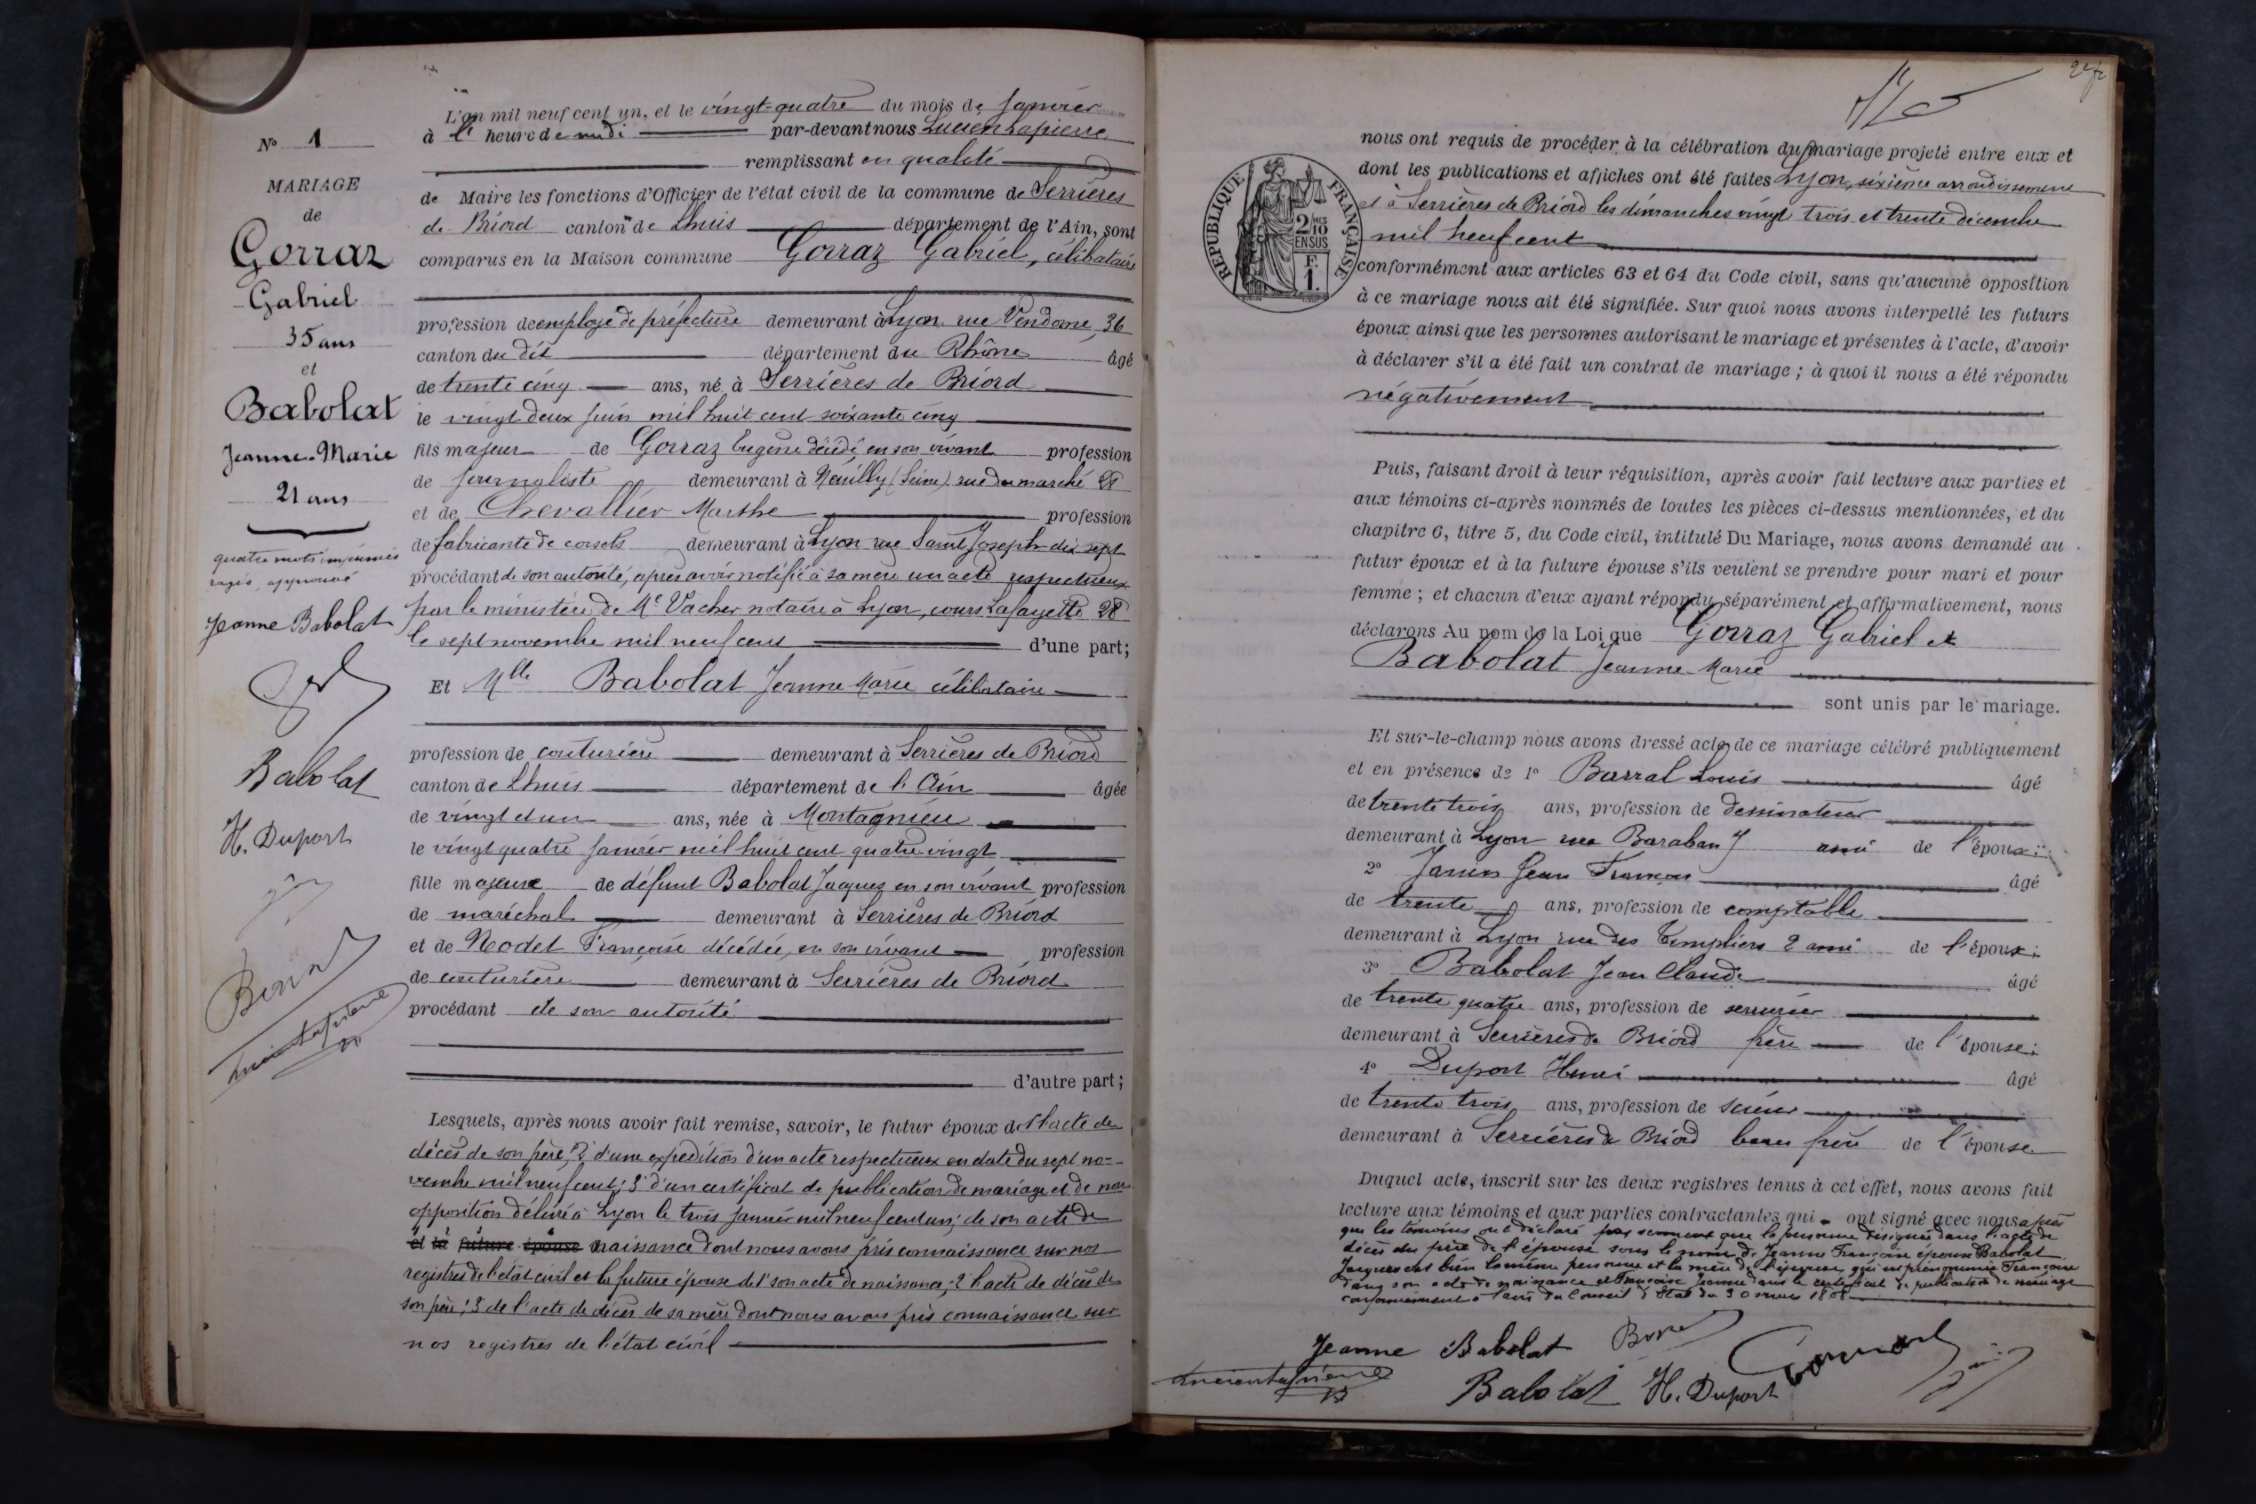 N° 1
MARIAGE
de
Gorraz
Gabriel
35 ans
et
Babolat
Jeanne-Marie
21 ans
quatre mots imprimés
rayés, approuvé
Jeanne Babolat
Babolat
H. Duport
L'an mil neuf cent un, et le vingt-quatre du mois de Janvier
à l' heure de midi par-devant nous Lucien Lapierre
remplissant en qualité
de Maire les fonctions d'Officier de l'état civil de la commune de Serrières
de Briord canton de Lhuis département de l'Ain, sont
comparus en la Maison commune Gorraz Gabriel, célibataire
profession de employé de préfecture demeurant à Lyon rue Vendome, 36
canton du dit département du Rhône âgé
de trente cinq ans, né à Serrières de Briord
le vingt deux juin mil huit cent soixante cinq
fils majeur de Gorraz Eugène décédé, en son vivant profession
de journaliste demeurant à Neuilly (Seine) rue du marché 28
et de Chevallier Marthe profession
de fabricante de corsets demeurant à Lyon rue Saint Joseph dix sept
procédant de son autorité, après avoir notifié à sa mère un acte respectueux
par le ministère de Me Vacher notaire à Lyon, cours Lafayette 28
le sept novembre mil neuf cent d'une part;
Et Mlle Babolat Jeanne Marie célibataire
profession de couturière demeurant à Serrières de Briord
canton de Lhuis département de l'Ain âgée
de vingt et un ans, née à Montagnieu
le vingt quatre janvier mil huit cent quatre vingt
fille majeure de défunt Babolat Jaques en son vivant profession
de maréchal demeurant à Serrières de Briord
et de Nodet Françoise décédée, en son vivant profession
de couturière demeurant à Serrières de Briord
procédant de son autorité
d'autre part;
Lesquels, après nous avoir fait remise, savoir, le futur époux de l'acte de
décès de son père, 2° d'une expédition d'un acte respectueux en date du sept no-
vembre mil neuf cent; 3° d'un certificat de publication de mariage et de non
opposition délivré à Lyon le trois janvier mil neuf cent un; de son acte de
et la future épouse naissance dont nous avons pris connaissance sur nos
registres de l'état civil et la future épouse de 1° son acte de naissance; 2° l'acte de décès de
son père; 3° de l'acte de décès de sa mère dont nous avons pris connaissance sur
nos registres de l'état civil
RÉPUBLIQUE FRANÇAISE
2/10
EN SUS
F.
1.
nous ont requis de procéder à la célébration du mariage projeté entre eux et
dont les publications et affiches ont été faites Lyon, sixième arrondissement
et à Serrières de Briord les dimanches vingt trois et trente décembre
mil neuf cent
conformément aux articles 63 et 64 du Code civil, sans qu'aucune opposition
à ce mariage nous ait été signifiée. Sur quoi nous avons interpellé les futurs
époux ainsi que les personnes autorisant le mariage et présentes à l'acte, d'avoir
à déclarer s'il a été fait un contrat de mariage; à quoi il nous a été répondu
négativement
Puis, faisant droit à leur réquisition, après avoir fait lecture aux parties et
aux témoins ci-après nommés de toutes les pièces ci-dessus mentionnées, et du
chapitre 6, titre 5, du Code civil, intitulé Du Mariage, nous avons demandé au
futur époux et à la future épouse s'ils veulent se prendre pour mari et pour
femme; et chacun d'eux ayant répondu séparément et affirmativement, nous
déclarons Au nom de la Loi que Gorraz Gabriel et
Babolat Jeanne-Marie
sont unis par le mariage.
Et sur-le-champ nous avons dressé acte de ce mariage célébré publiquement
et en présence de 1° Barral Louis âgé
de trente trois ans, profession de dessinateur
demeurant à Lyon rue Baraban 7 ami de l'époux;
2° Janin Jean François âgé
de trente ans, profession de comptable
demeurant à Lyon rue des Templiers 2 ami de l'époux;
3° Babolat Jean Claude âgé
de trente quatre ans, profession de serrurier
demeurant à Serrières de Briord frère de l'épouse;
4° Duport Henri âgé
de trente trois ans, profession de scieur
demeurant à Serrières de Briord beau frère de l'épouse
Duquel acte, inscrit sur les deux registres tenus à cet effet, nous avons fait
lecture aux témoins et aux parties contractantes qui ont signé avec nous après
que les témoins ont déclaré par serment que la personne désignée dans l'acte de
décès du père de l'épouse sous le nom de Jeanne Françoise épouse Babolat
Jacques est bien la même personne et la mère de l'épouse qui est prénommée Françoise
dans son acte de naissance et Françoise Jeanne dans le certificat de publication de mariage
conformément à l'avis du Conseil d'Etat du 30 mars 1808
Jeanne Babolat
Babolat H. Duport